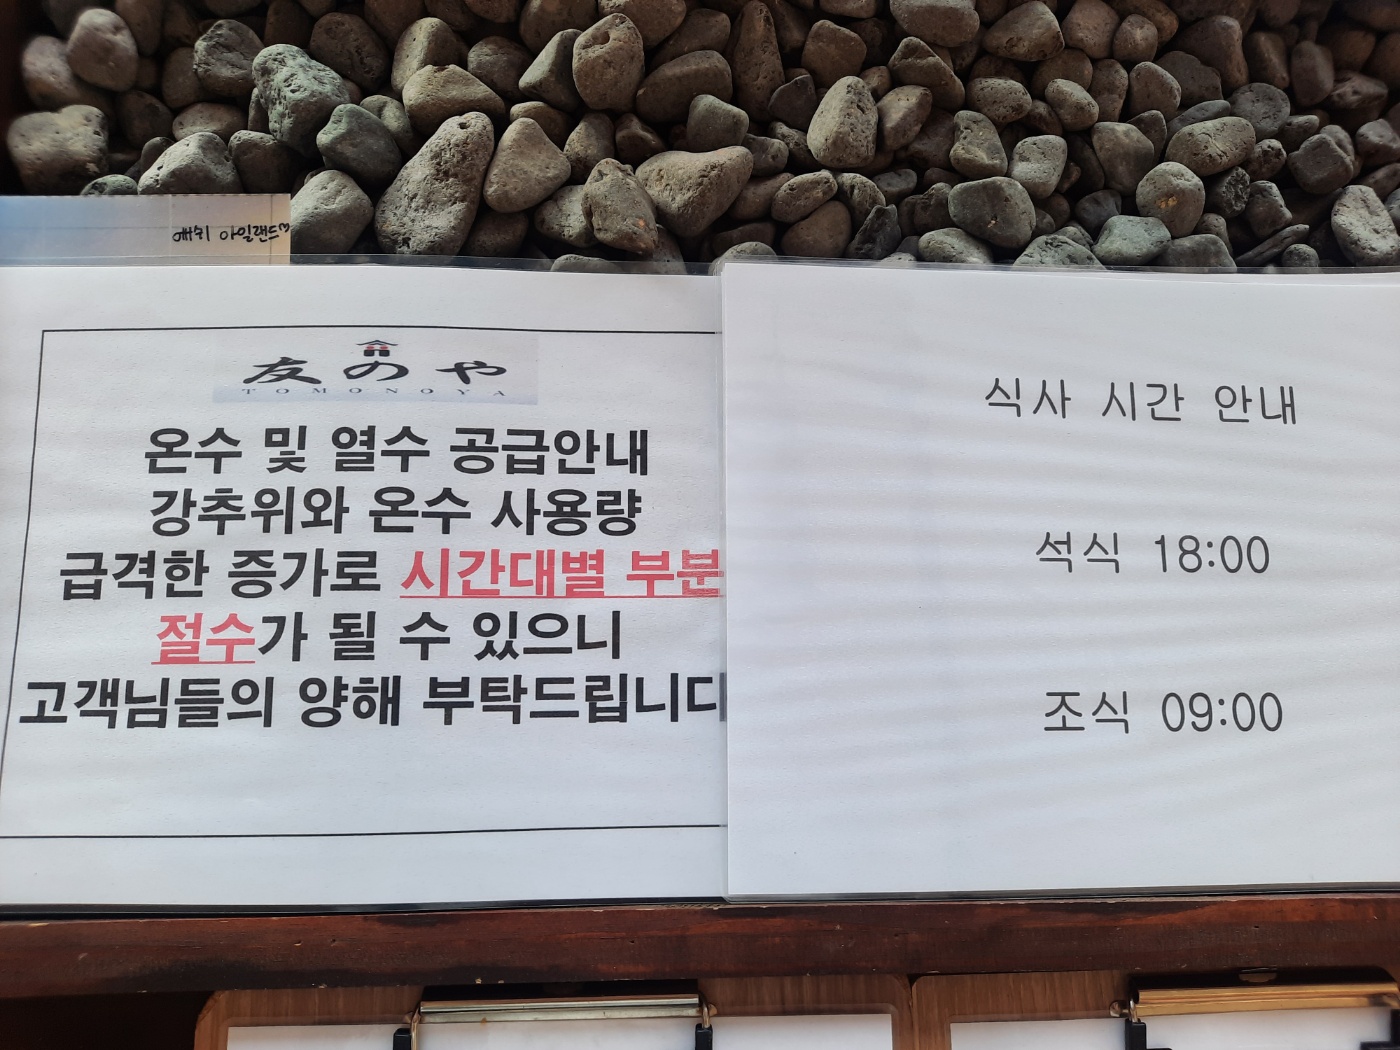 애쉬 아일랜드♡
友のや
TOMONOYA
온수 및 열수 공급안내
강추위와 온수 사용량
급격한 증가로 시간대별 부분
절수가 될 수 있으니
고객님들의 양해 부탁드립니다
식사 시간 안내
석식 18:00
조식 09:00